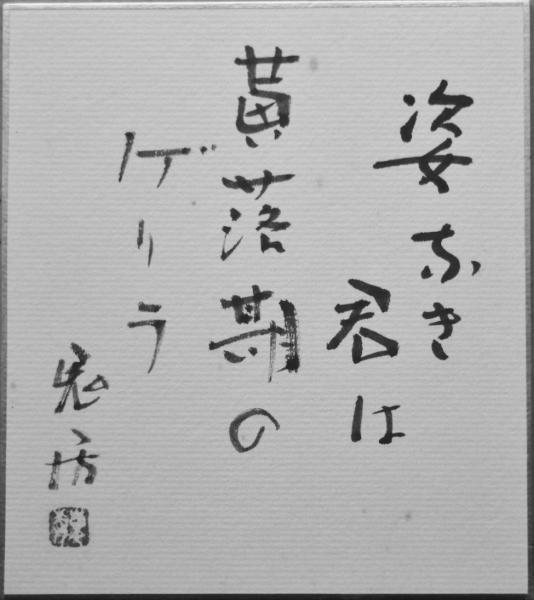 姿なき
君は
黄落期の
ゲリラ
房